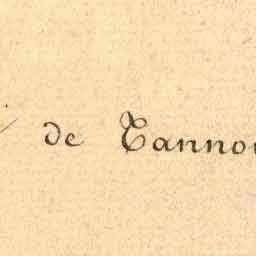 de Tanno